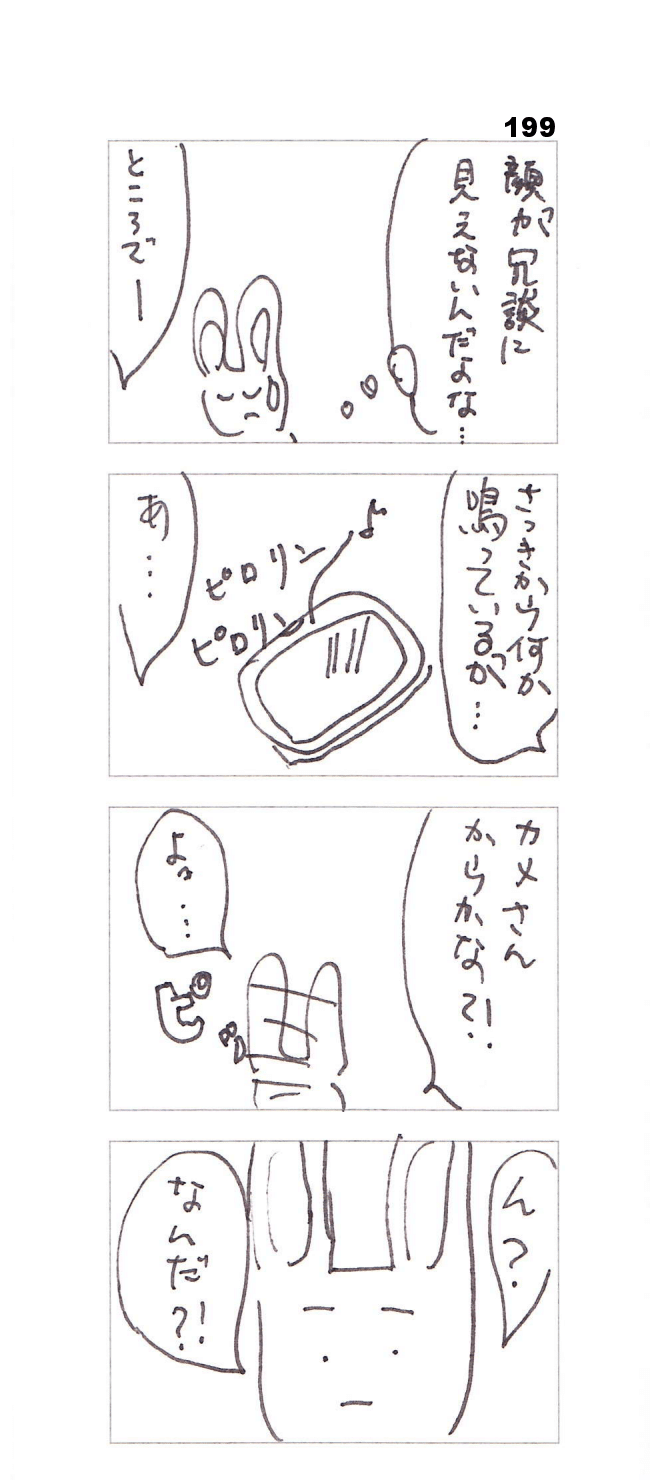 199
顔が冗談に
見えないんだよな…
ところでー
さっきから何か
鳴っているが…
♪
ピロリン
ピロリン
あ…
カメさん
からかな?!
よっ…
ピッ
ん?
なんだ?!